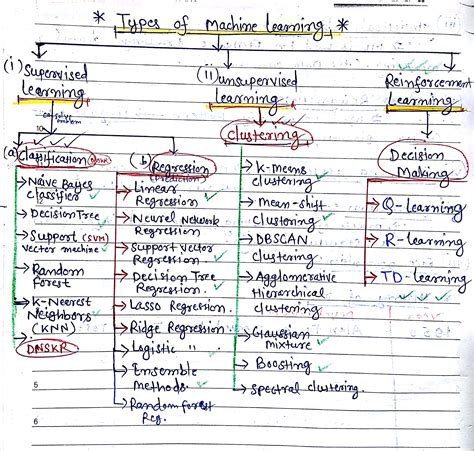 * Types of Machine Learning *
(i) Supervised Learning
can solve problem
(a) Classification (DNSKR)
→ Naive Bayes classifier
→ Decision Tree
→ Support (SVM) vector machine
→ Random Forest
→ K-Neerest Neighbors (KNN)
DNSKR
(b) Regression (Prediction)
→ Linear Regression
→ Neural Network Regression
→ Support Vector Regression
→ Decision Tree Regression
→ Lasso Regression
→ Ridge Regression
→ Logistic "
→ Ensemble Methods.
→ Random forest Reg.
(ii) unsupervised Learning
Clustering
→ K-means clustering
→ mean-shift clustering
→ DBSCAN clustering
→ Agglomerative Hierarchical clustering
→ Gaussian mixture
→ Boosting
→ Spectral clustering.
Reinforcement Learning
Decision Making
→ Q-Learning
→ R-learning
→ TD-learning
10
5
6